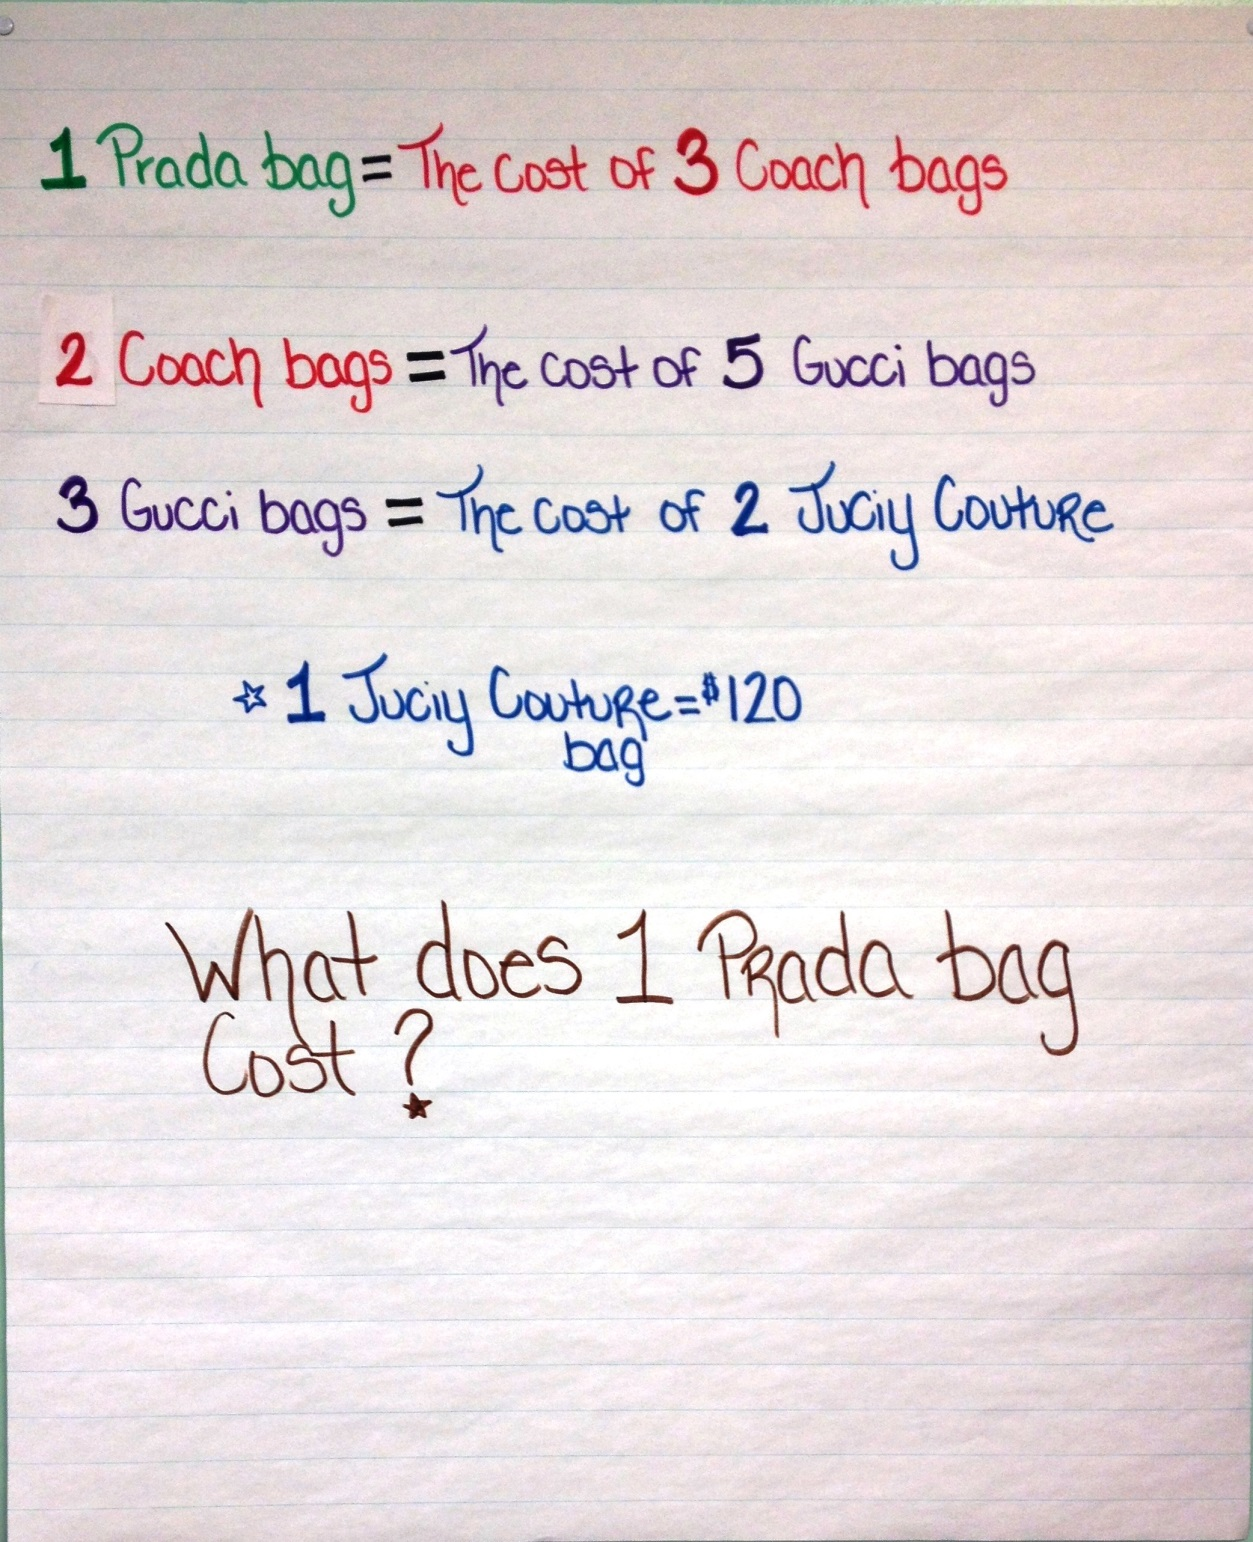 1 Prada bag = The cost of 3 Coach bags
2 Coach bags = The cost of 5 Gucci bags
3 Gucci bags = The cost of 2 Juciy Couture
☆ 1 Juciy Couture = $120
bag
What does 1 Prada bag
Cost ?